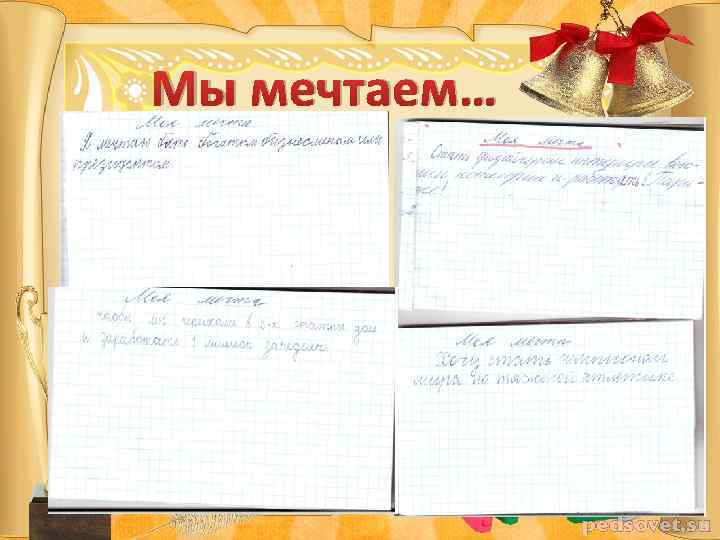 Мы мечтаем...
Моя мечта
Я мечтаю быть богатым бизнесменом или
президентом
Моя мечта
Стать дизайнером интерьера
и работать в Пари-
же!
Моя мечта
чтобы мы поехали в 2-х этажный дом
и заработать 1 миллион за неделю.
Моя мечта
Хочу стать чемпионом
мира по тяжёлой атлетике.
pedsovet.su